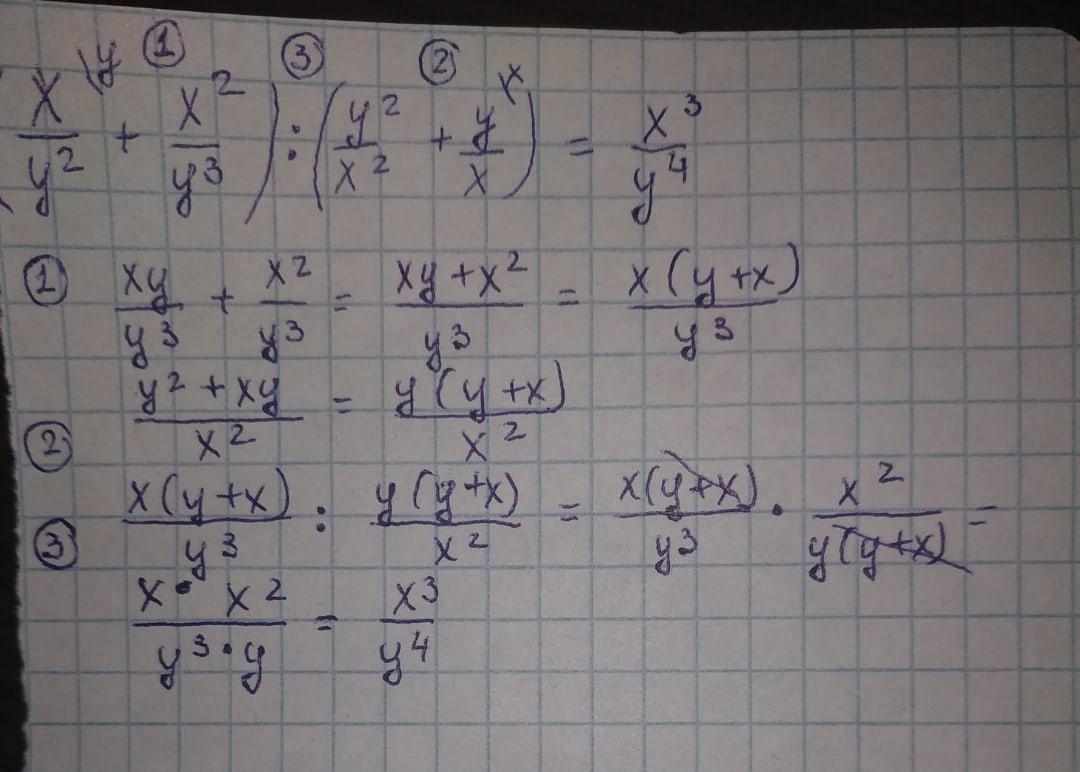 ① ③ ②
(x/y² \y + x²/y³) : (y²/x² + y/x \x) = x³/y⁴
① xy/y³ + x²/y³ = (xy + x²)/y³ = x(y + x)/y³
② (y² + xy)/x² = y(y + x)/x²
③ x(y + x)/y³ : y(y + x)/x² = x(y + x)/y³ · x²/y(y + x) =
x · x²/y³ · y = x³/y⁴